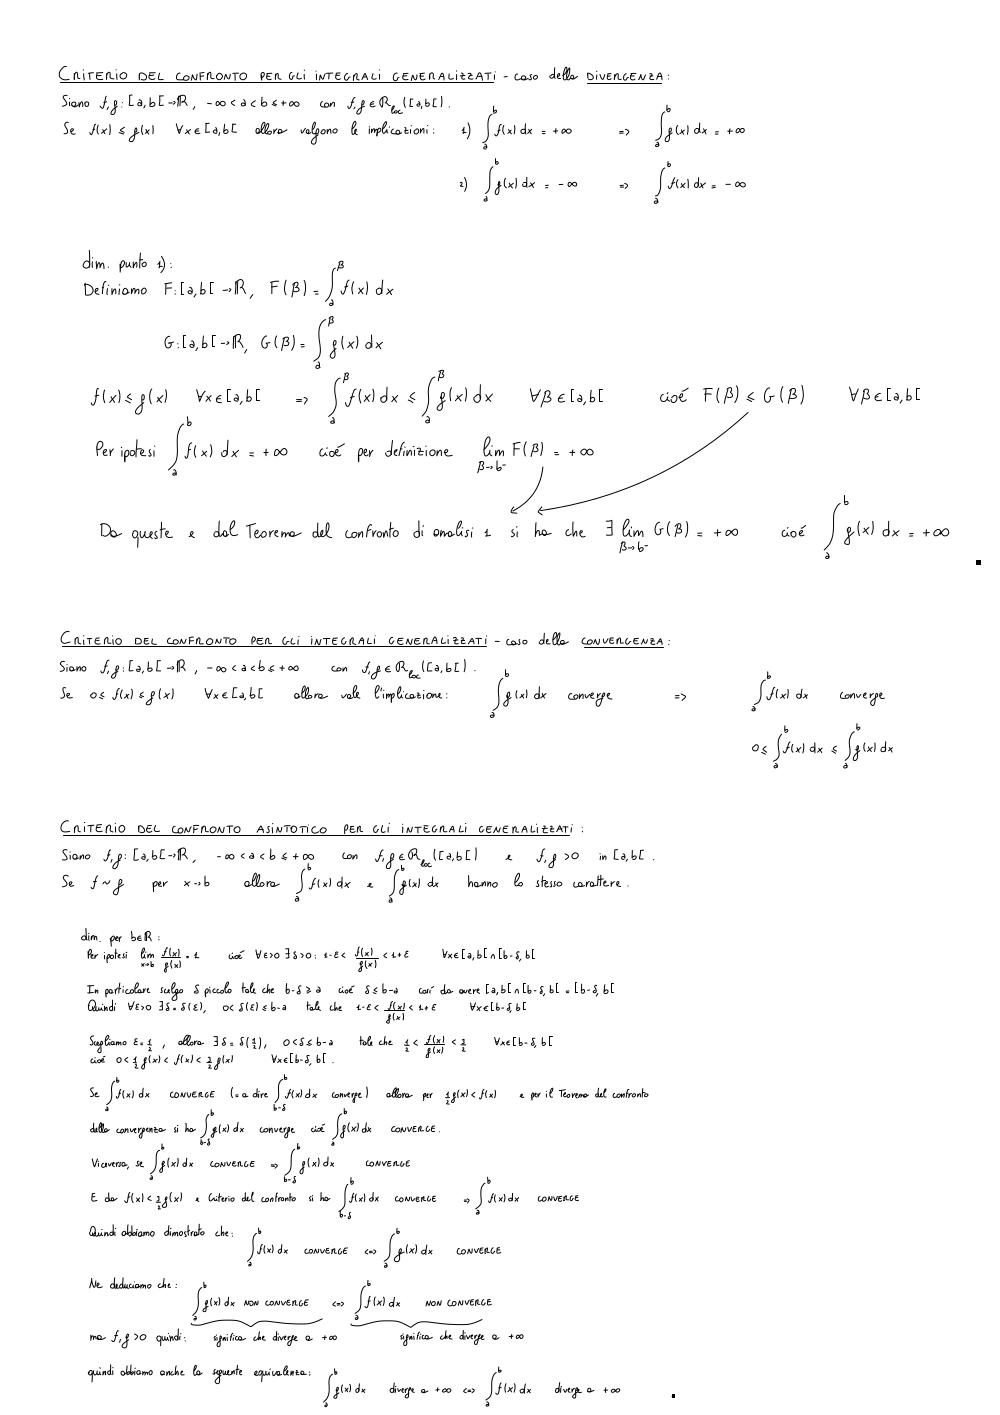 CRITERIO DEL CONFRONTO PER GLI INTEGRALI GENERALIZZATI - caso della DIVERGENZA:
Siano f,g: [a,b[ → ℝ, -∞ < a < b ≤ +∞ con f,g ∈ ℛ_loc([a,b[).
Se f(x) ≤ g(x) ∀x∈[a,b[ allora valgono le implicazioni: 1) ∫_a^b f(x) dx = +∞ => ∫_a^b g(x) dx = +∞
2) ∫_a^b g(x) dx = -∞ => ∫_a^b f(x) dx = -∞
dim. punto 1):
Definiamo F: [a,b[ → ℝ, F(β) = ∫_a^β f(x) dx
G: [a,b[ → ℝ, G(β) = ∫_a^β g(x) dx
f(x) ≤ g(x) ∀x∈[a,b[ => ∫_a^β f(x) dx ≤ ∫_a^β g(x) dx ∀β∈[a,b[ cioé F(β) ≤ G(β) ∀β∈[a,b[
Per ipotesi ∫_a^b f(x) dx = +∞ cioé per definizione lim_{β→b⁻} F(β) = +∞
Da queste e dal Teorema del confronto di analisi 1 si ha che ∃ lim_{β→b⁻} G(β) = +∞ cioé ∫_a^b g(x) dx = +∞
CRITERIO DEL CONFRONTO PER GLI INTEGRALI GENERALIZZATI - caso della CONVERGENZA:
Siano f,g: [a,b[ → ℝ, -∞ < a < b ≤ +∞ con f,g ∈ ℛ_loc([a,b[).
Se 0 ≤ f(x) ≤ g(x) ∀x∈[a,b[ allora vale l'implicazione: ∫_a^b g(x) dx converge => ∫_a^b f(x) dx converge
0 ≤ ∫_a^b f(x) dx ≤ ∫_a^b g(x) dx
CRITERIO DEL CONFRONTO ASINTOTICO PER GLI INTEGRALI GENERALIZZATI:
Siano f,g: [a,b[ → ℝ, -∞ < a < b ≤ +∞ con f,g ∈ ℛ_loc([a,b[) e f,g > 0 in [a,b[.
Se f ~ g per x→b allora ∫_a^b f(x) dx e ∫_a^b g(x) dx hanno lo stesso carattere.
dim. per b∈ℝ:
Per ipotesi lim_{x→b} f(x)/g(x) = 1 cioé ∀ε>0 ∃δ>0: 1-ε < f(x)/g(x) < 1+ε ∀x∈[a,b[ ∩ [b-δ,b[
In particolare scelgo δ piccolo tale che b-δ ≥ a cioé δ ≤ b-a cosí da avere [a,b[ ∩ [b-δ,b[ = [b-δ,b[
Quindi ∀ε>0 ∃δ = δ(ε), 0 < δ(ε) ≤ b-a tale che 1-ε < f(x)/g(x) < 1+ε ∀x∈[b-δ,b[
Scegliamo ε = 1/2, allora ∃δ = δ(1/2), 0 < δ ≤ b-a tale che 1/2 < f(x)/g(x) < 3/2 ∀x∈[b-δ,b[
cioé 0 < 1/2 g(x) < f(x) < 3/2 g(x) ∀x∈[b-δ,b[.
Se ∫_a^b f(x) dx CONVERGE (= a dire ∫_{b-δ}^b f(x) dx converge) allora per 1/2 g(x) < f(x) e per il Teorema del confronto
della convergenza si ha ∫_{b-δ}^b g(x) dx converge cioé ∫_a^b g(x) dx CONVERGE.
Viceversa, se ∫_a^b g(x) dx CONVERGE => ∫_{b-δ}^b g(x) dx CONVERGE
E da f(x) < 3/2 g(x) e Criterio del confronto si ha ∫_{b-δ}^b f(x) dx CONVERGE => ∫_a^b f(x) dx CONVERGE
Quindi abbiamo dimostrato che: ∫_a^b f(x) dx CONVERGE <=> ∫_a^b g(x) dx CONVERGE
Ne deduciamo che: ∫_a^b g(x) dx NON CONVERGE <=> ∫_a^b f(x) dx NON CONVERGE
ma f,g > 0 quindi: significa che diverge a +∞ significa che diverge a +∞
quindi abbiamo anche la seguente equivalenza: ∫_a^b g(x) dx diverge a +∞ <=> ∫_a^b f(x) dx diverge a +∞